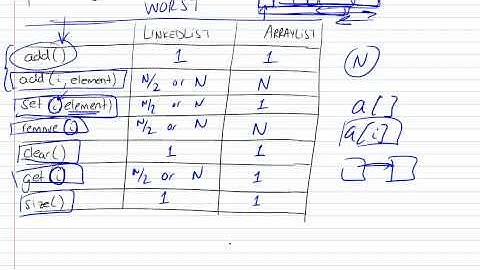 WORST
LINKEDLIST ARRAYLIST
add() 1 1
add(i, element) N/2 or N N
set (i, element) N/2 or N 1
remove (i) N/2 or N N
clear() 1 1
get (i) N/2 or N 1
size() 1 1
N
a[]
a[i]